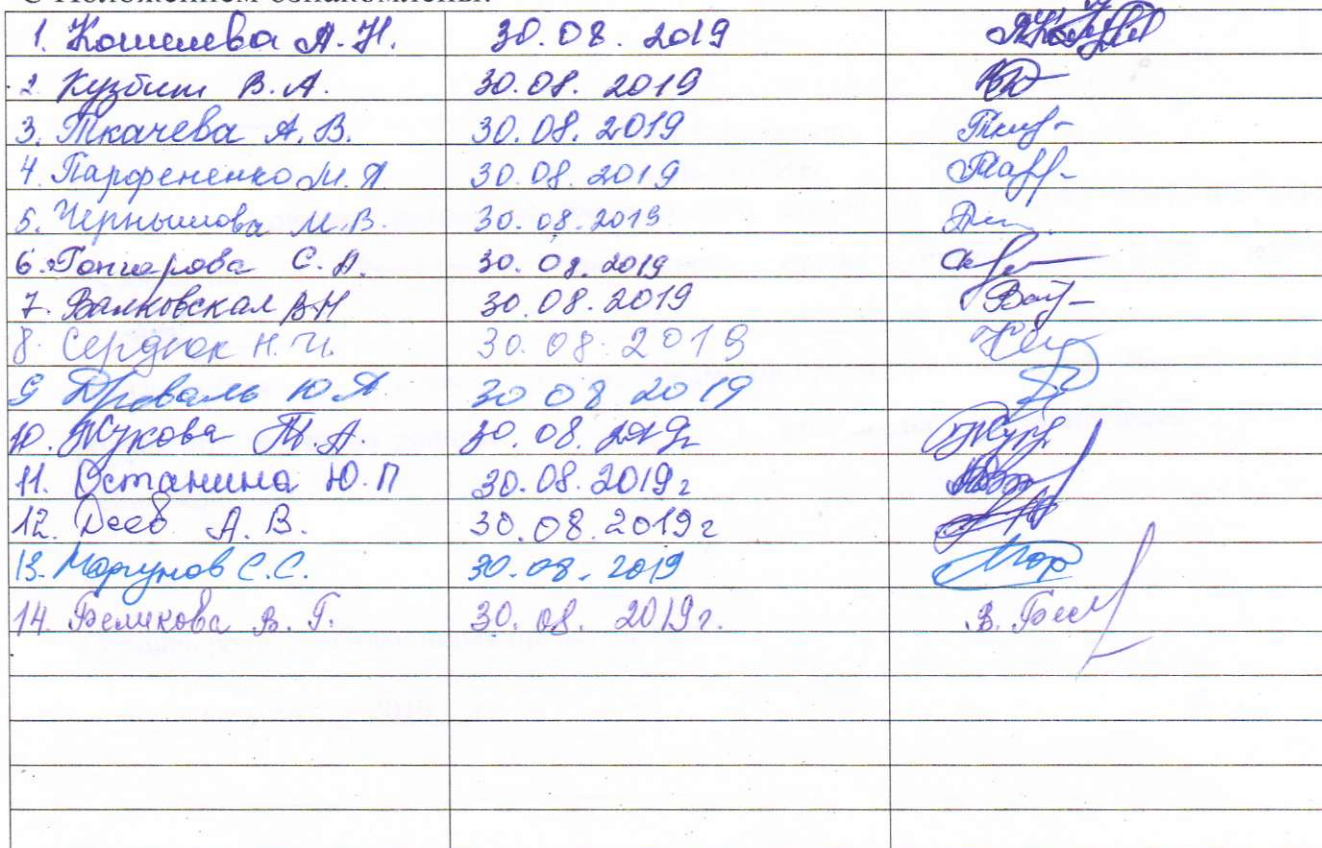 С Положением ознакомлены:
1. Кошелева А.Н. 30.08.2019
2 Кузбит В.А. 30.08.2019
3. Ткачева А.В. 30.08.2019
4. Парфененко М.А 30.08.2019
5. Чернышова М.В. 30.08.2019
6. Гончарова С.А. 30.08.2019
7. Валковская В.Н 30.08.2019
8. Сердюк Н.И. 30.08.2019
9 Дроваль Ю А 30 08 2019
10. Жукова Т.А. 30.08.2019г
11. Останина Ю.П 30.08.2019г
12. Деев А.В. 30.08.2019г
13. Моргунов С.С. 30.08.2019
14. Беликова В.Г. 30.08.2019г.